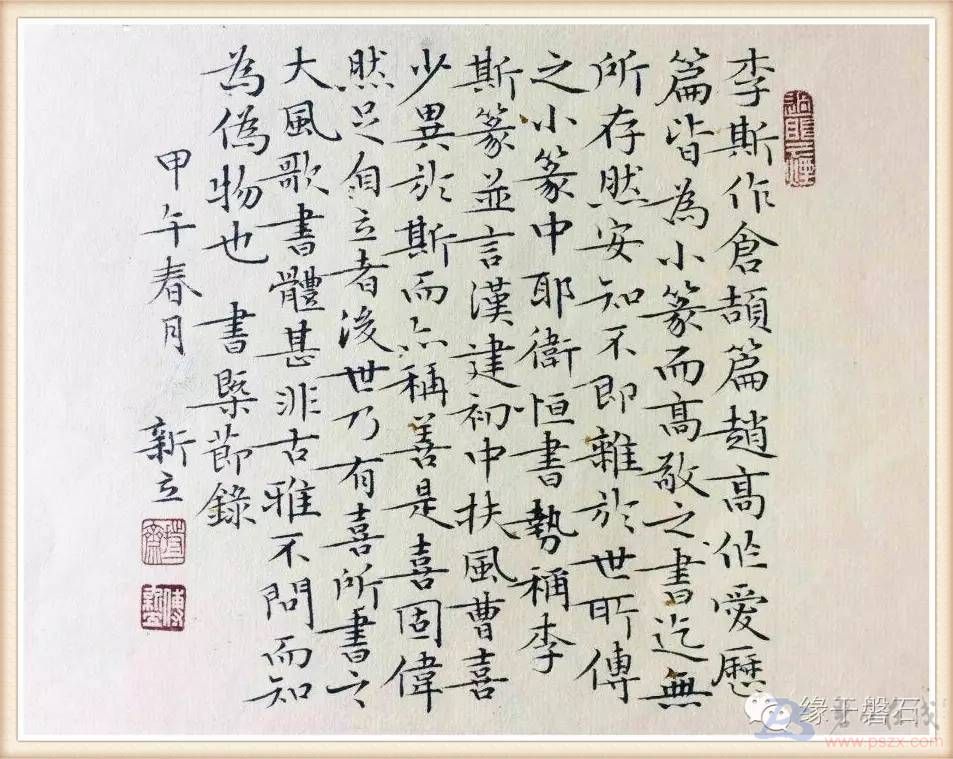 李斯作倉頡篇趙高作愛歷
篇皆為小篆而高敬之書迄無
所存然安知不即雜於世所傳
之小篆中耶衛恒書勢稱李
斯篆並言漢建初中扶風曹喜
少異於斯而亦稱善是喜固偉
然足自立者後世乃有喜所書之
大風歌書體甚非古雅不問而知
為偽物也 書槩節錄
甲午春月 新立
缘于磐石
www.pszx.com